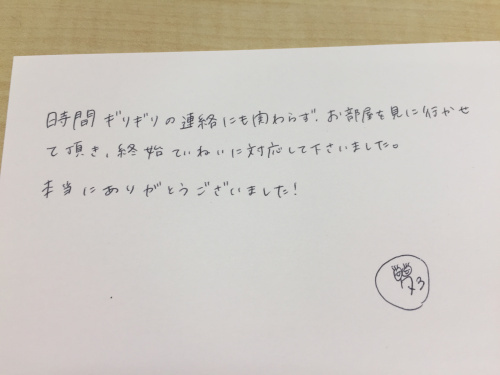 時間ギリギリの連絡にも関わらず、お部屋を見に行かせ
て頂き、終始ていねいに対応して下さいました。
本当にありがとうございました!